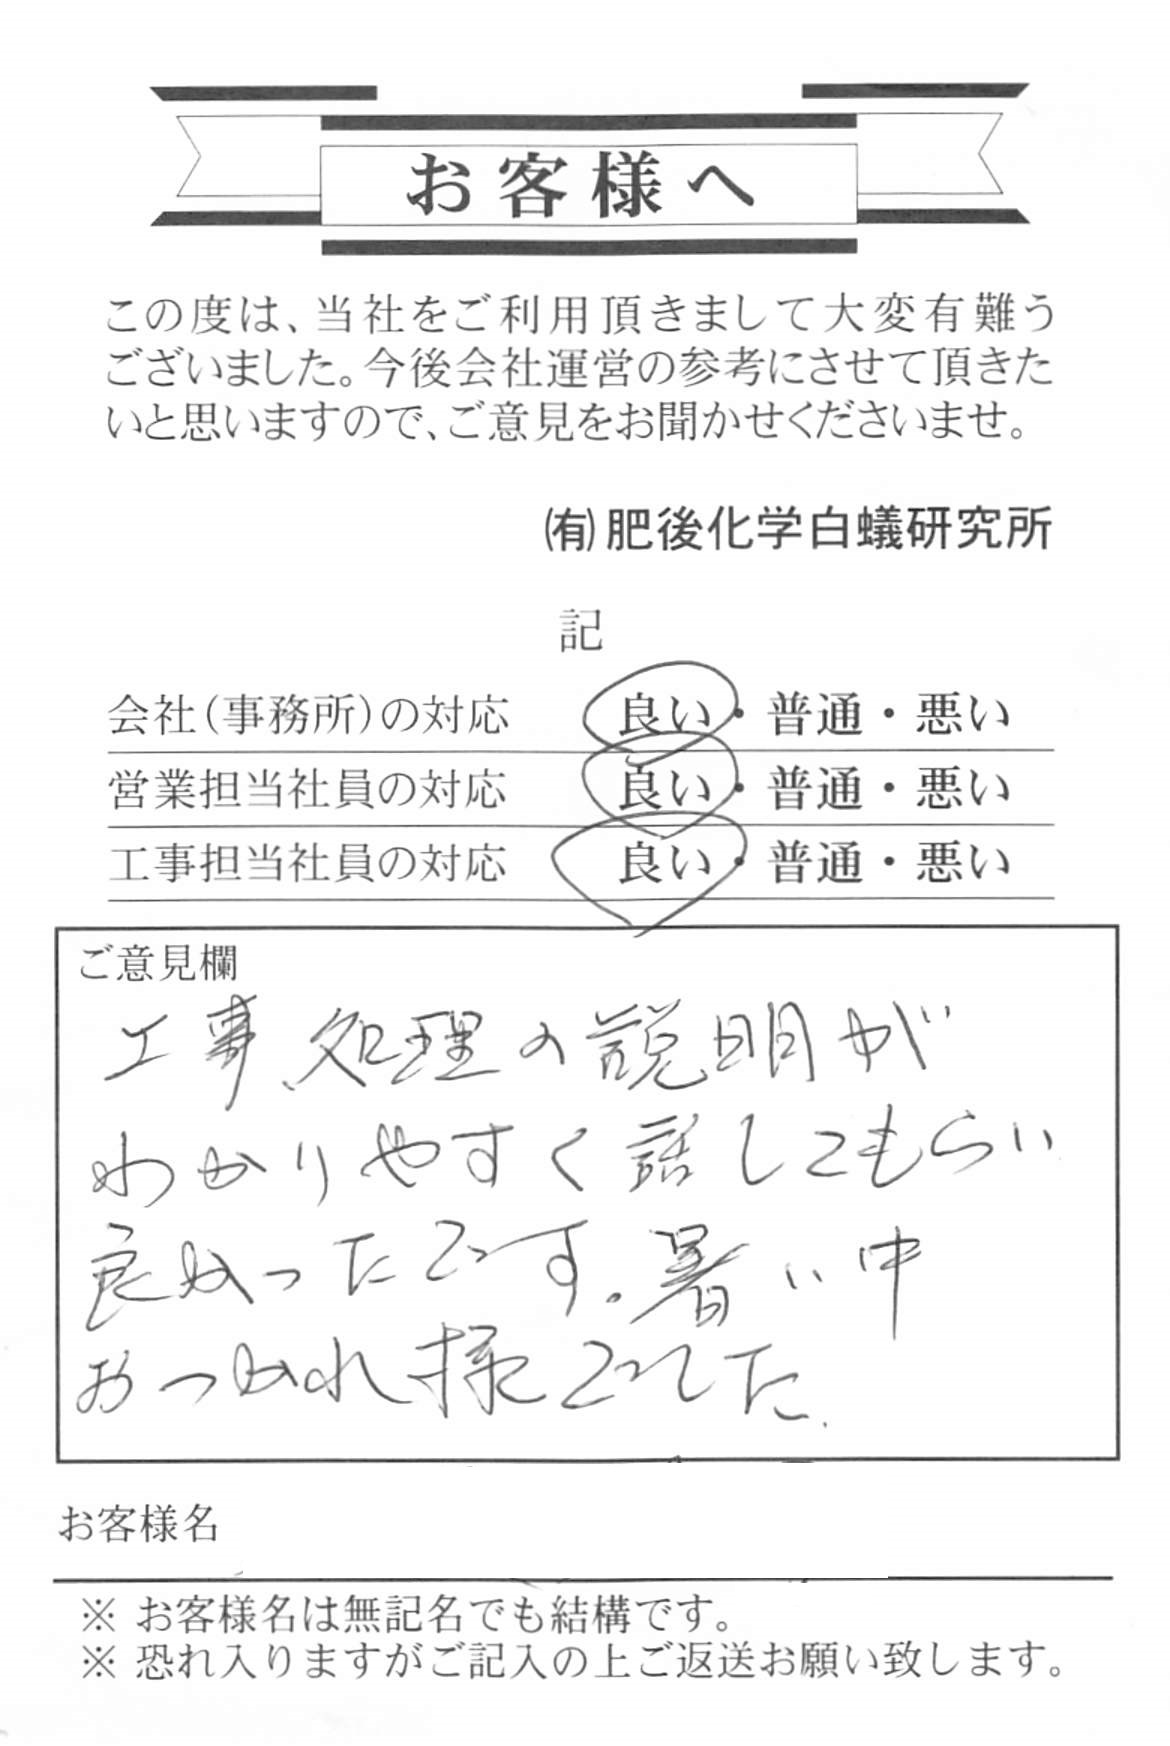 お客様へ
この度は、当社をご利用頂きまして大変有難う
ございました。今後会社運営の参考にさせて頂きた
いと思いますので、ご意見をお聞かせくださいませ。
㈲肥後化学白蟻研究所
記
会社(事務所)の対応 良い・普通・悪い
営業担当社員の対応 良い・普通・悪い
工事担当社員の対応 良い・普通・悪い
ご意見欄
工事、処理の説明が
わかりやすく話してもらい
良かったです。暑い中
おつかれ様でした。
お客様名
※ お客様名は無記名でも結構です。
※ 恐れ入りますがご記入の上ご返送お願い致します。